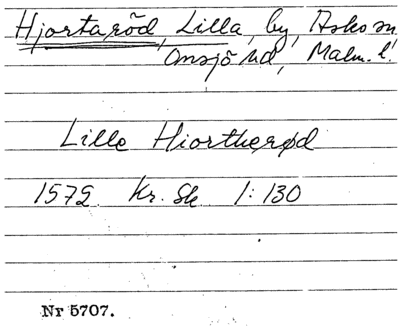 Hjortaröd, Lilla, by, Asko sn
Onsjö hd, Malm. l.
Lille Hiortherød
1579 Kr. Sk. 1:130
Nr 5707.